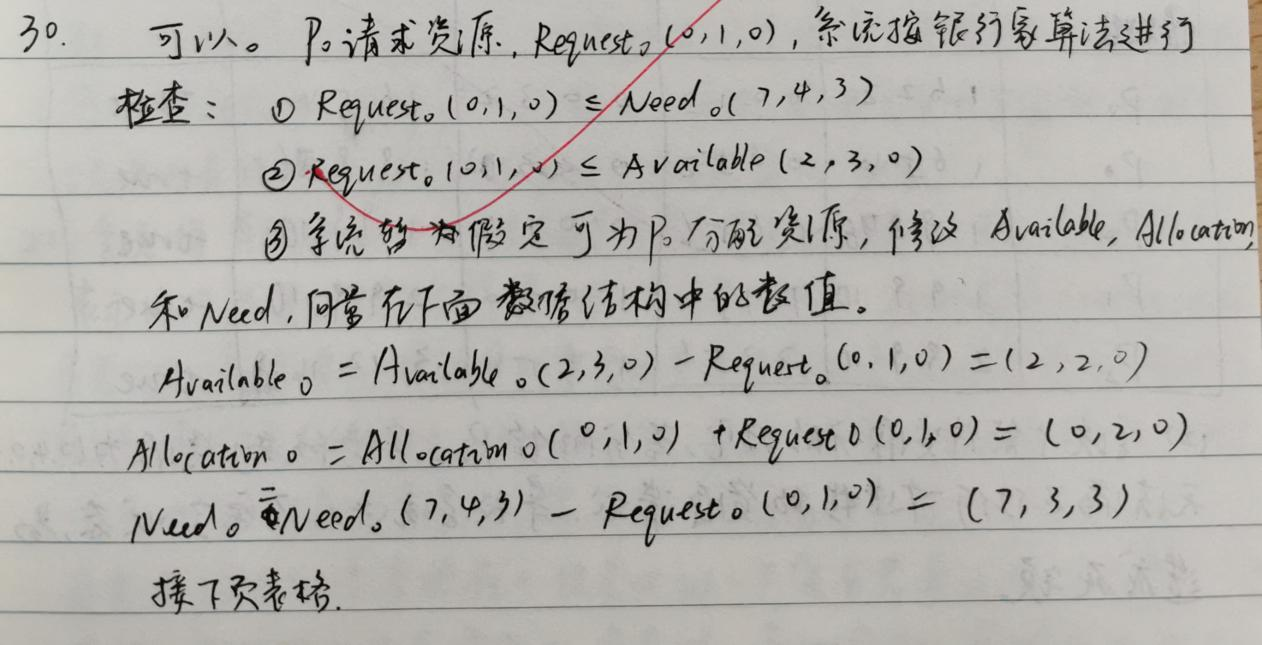 30. 可以。P₀请求资源，Request₀(0,1,0)，系统按银行家算法进行
检查：① Request₀(0,1,0) ≤ Need₀(7,4,3)
② Request₀(0,1,0) ≤ Available(2,3,0)
③ 系统暂为假定可为P₀分配资源，修改 Available, Allocation,
和 Need，向量在下面数据结构中的数值。
Available₀ = Available₀(2,3,0) - Request₀(0,1,0) = (2,2,0)
Allocation₀ = Allocation₀(0,1,0) + Request₀(0,1,0) = (0,2,0)
Need₀ = Need₀(7,4,3) - Request₀(0,1,0) = (7,3,3)
接下页表格.